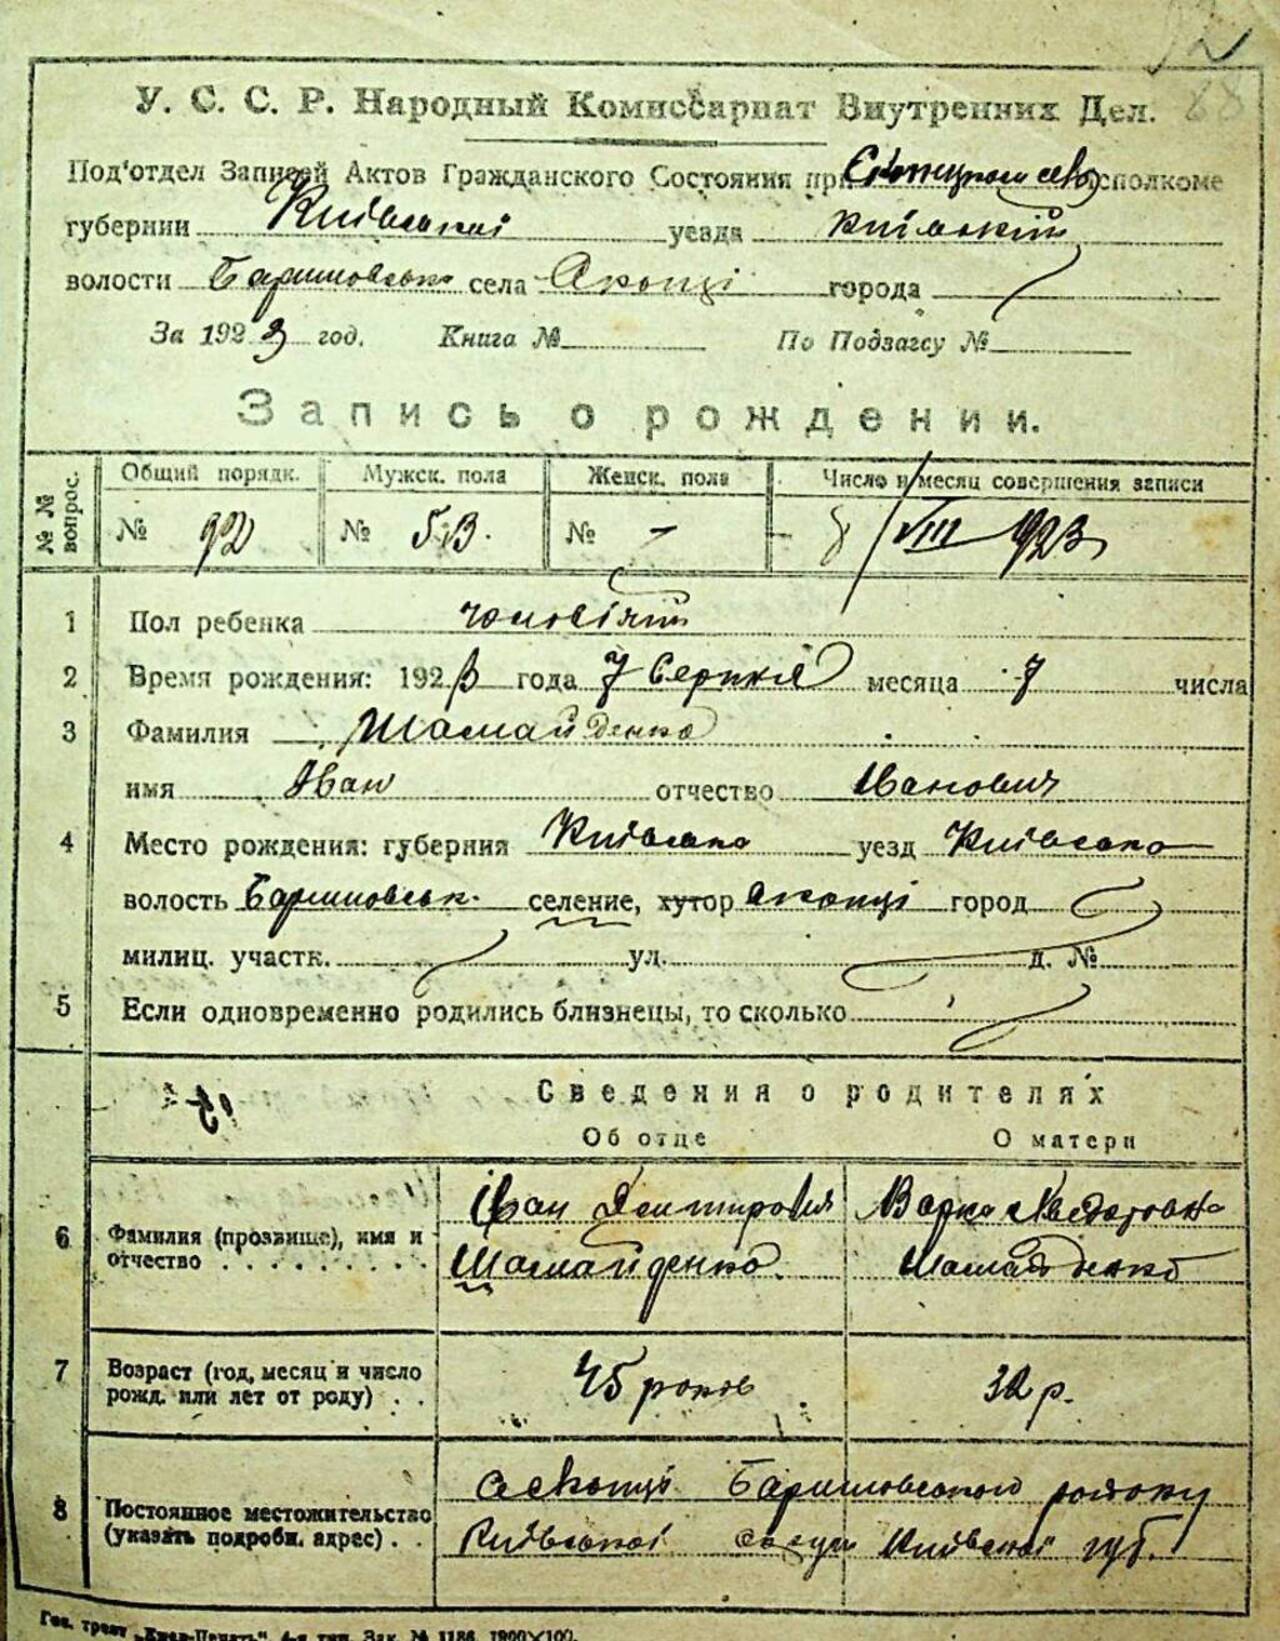 92
88
У. С. С. Р. Народный Комиссариат Внутренних Дел.
Под'отдел Записей Актов Гражданского Состояния при исполкоме
губернии Київської уезда Київський
волости Баришовськ села Скопці города
За 1923 год. Книга № По Подзагсу №
Запись о рождении.
№ № вопрос. Общий порядк. Мужск. пола Женск. пола Число и месяц совершения записи
№ 92 № 53. № - 8/VIII 1923
1 Пол ребенка чоловічий
2 Время рождения: 1923 года 7 Серпня месяца 7 числа
3 Фамилия Шамайденко
имя Іван отчество Иванович
4 Место рождения: губерния Київська уезд Київська
волость Баришовськ. селение, хутор Скопці город
милиц. участк. ул. д. №
5 Если одновременно родились близнецы, то сколько
Сведения о родителях
Об отце О матери
6 Фамилия (прозвище), имя и отчество . . . . . . . . . Іван Дмитрович Варка
Шамайденко Шамайденко
7 Возраст (год, месяц и число рожд. или лет от роду) . . 45 років 32 р.
8 Постоянное местожительство (указать подробн. адрес) . . с Скопці Баришовського району
Київської округи Київської губ.
Гос. трест „Киев-Печать“, 4-я тип. Зак. № 1186. 1900×100.